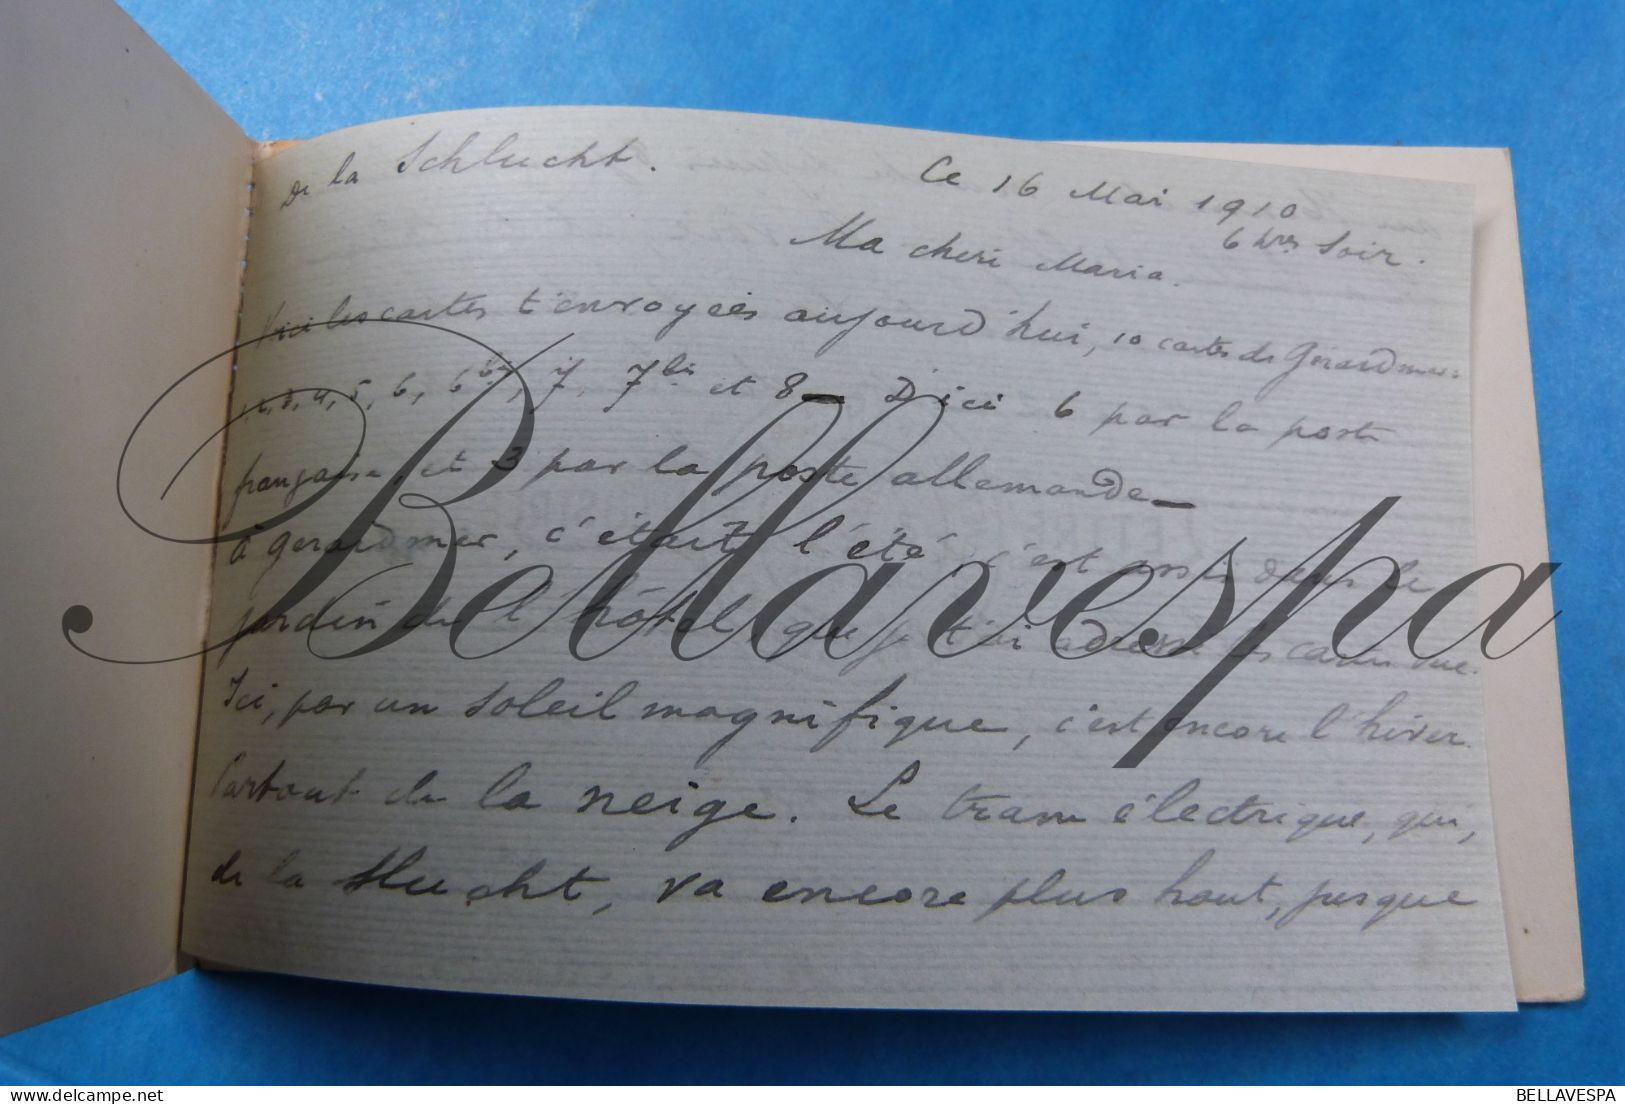 De la Schlucht.
Ce 16 Mai 1910
6 hres Soir.
Ma cheri Maria.
Voici les cartes t'envoyées aujourd'hui, 10 cartes de Gérardmer:
1, 2, 3, 4, 5, 6, 6bis, 7, 7bis et 8 — D'ici 6 par la poste
française et 3 par la poste allemande —
à Gerardmer, c'était l'été, c'est assis dans le
jardin de l'hôtel que je t'ai adressé les cartes vue.
Ici, par un soleil magnifique, c'est encore l'hiver.
Partout de la neige. Le tram électrique, qui,
de la Slucht, va encore plus haut, jusque
Bellavespa
BELLAVESPA